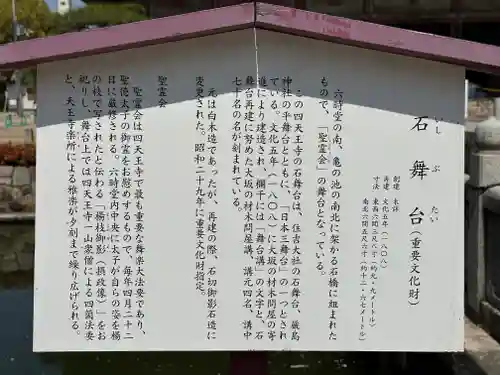 石舞台（重要文化財）
いし ぶ たい
創建 未詳
再建 文化五年（一八〇八）
寸法 東西六間五尺八寸（約九・九メートル）
南北六間五尺六寸（約十二・六メートル）
六時堂の南、亀の池の南北に架かる石橋に組まれた
もので、「聖霊会」の舞台となっている。
この四天王寺の石舞台は、住吉大社の石舞台、厳島
神社の平舞台とともに、「日本三舞台」の一つとされ
ている。文化五年（一八〇八）に大坂の材木問屋の寄
進により建造され、欄干には「舞台講」の文字と、石
舞台再建に努めた大坂の材木問屋講、講元四名、講中
七十名の名が刻まれている。
元は白木造であったが、再建の際、石切御影石造に
変更された。昭和二十九年に重要文化財指定。
聖霊会
聖霊会は四天王寺で最も重要な舞楽大法要であり、
聖徳太子の御霊をお慰めするもので、毎年四月二十二
日に厳修される。六時堂内中央に太子が自らの姿を楊
の枝で写されたと伝える「楊枝御影（摂政像）」をお
祀りし、舞台上では四天王寺一山衆僧による四箇法要
と、天王寺楽所による雅楽が夕刻まで繰り広げられる。